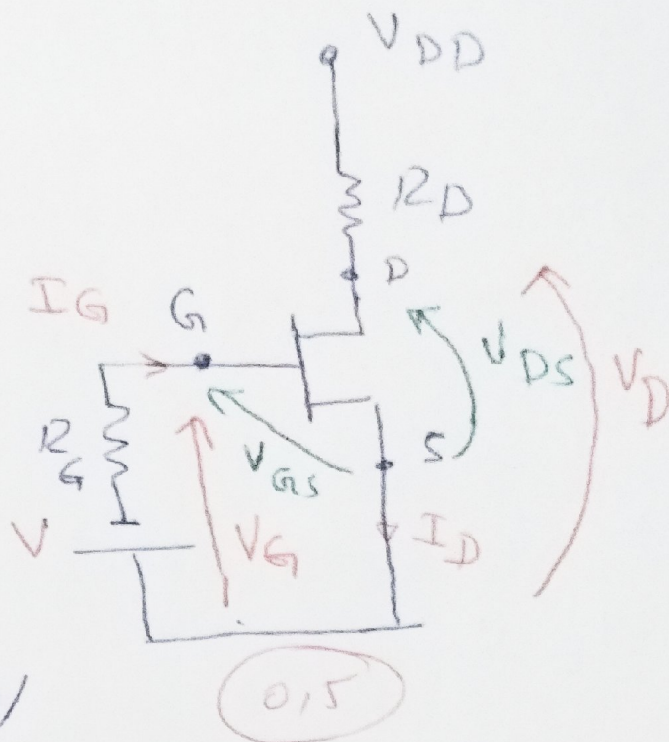 VDD
RD
D
IG
G
VDS
VD
RG
VGS
S
V
VG
ID
0,5